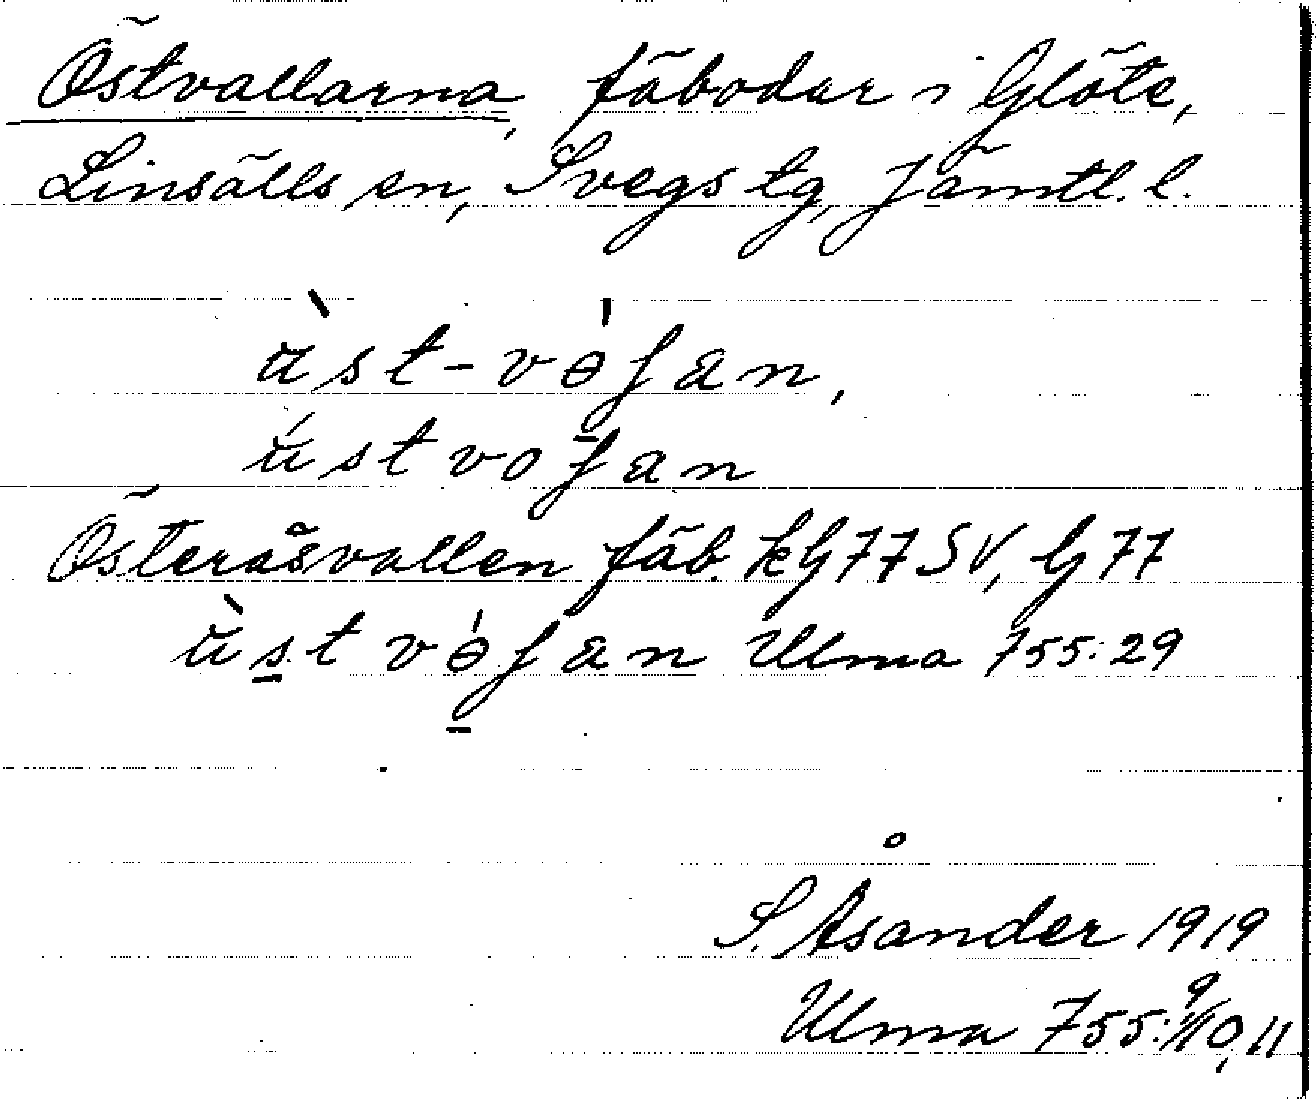 Östvallarna, fäbodar i Glöte,
Linsälls sn, Svegs tg, Jämtl. l.
ùst-vóʃan,
ústvoʃan
Österåsvallen fäb. kG77SV, G77
ùstvóʃan Ulma 755:29
S. Åsander 1919
Ulma 755:9/10, 11